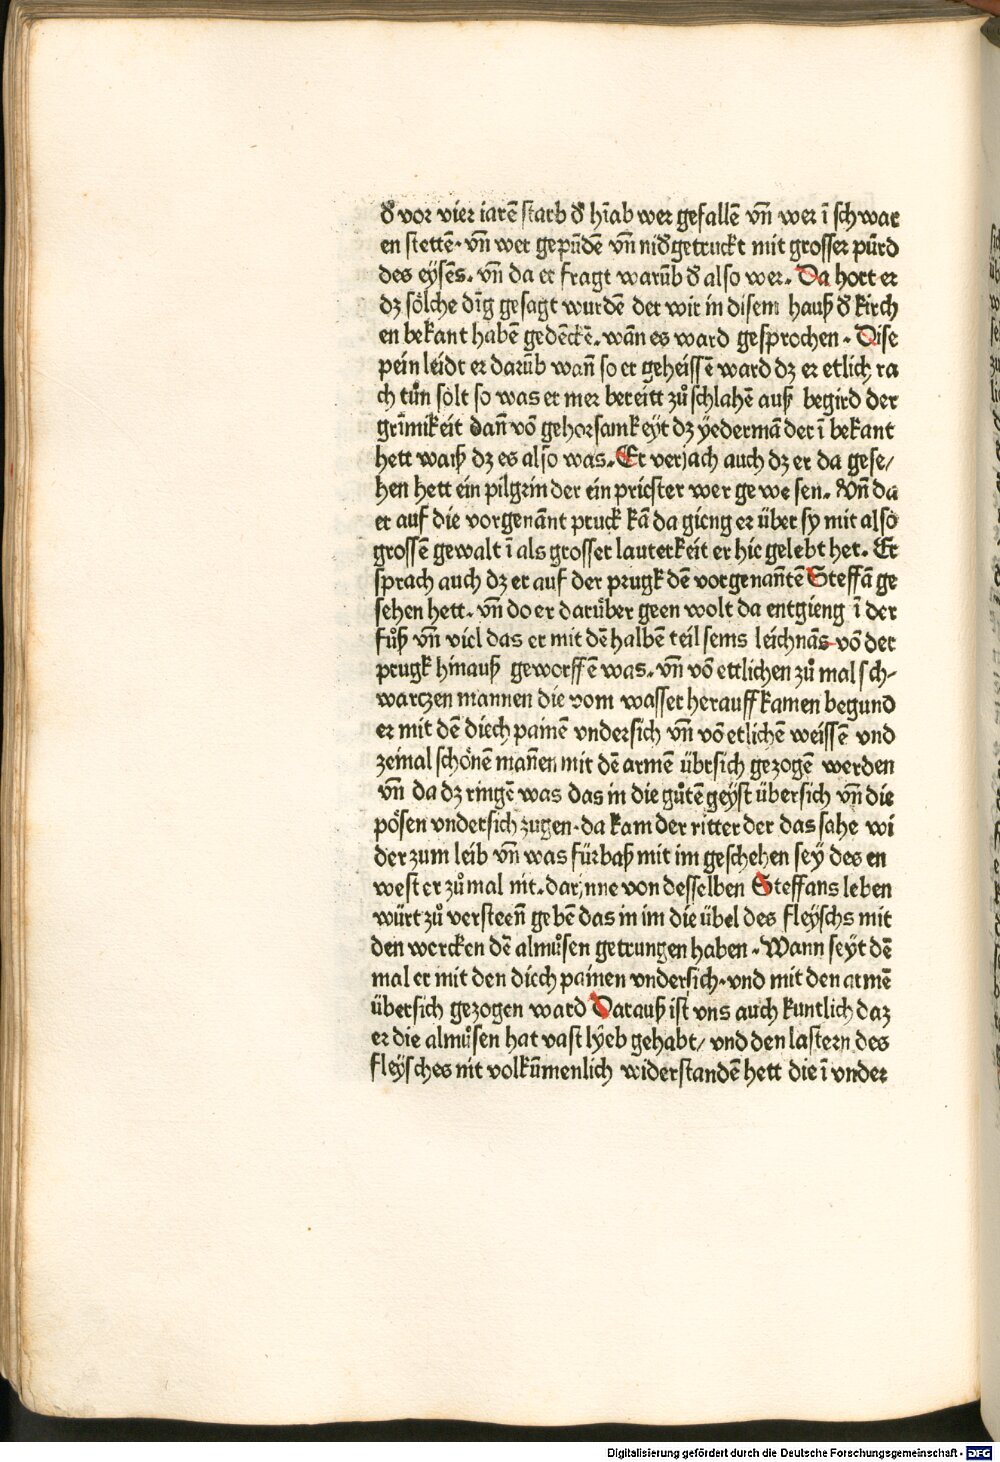 đ vor vier iarē starb đ hīab wer gefallē vn̄ wer ī schwar
en stettē. vn̄ wer gepūdē vn̄ niđgetruckt mit grosser pürd
des eysēs. vn̄ da er fragt warūb đ also wer. Da hort er
dz sölche dīg gesagt wurdē der wir in disem hauß đ kirch
en bekant habē gedēckē. wān es ward gesprochen. Dise
pein leidt er darūb wan̄ so er geheissē ward dz er etlich ra
ch tůn sölt so was er mer bereitt zů schlahē auß begird der
grīmikeit dan̄ vō gehorsamkeyt dz ÿedermā der ī bekant
hett waiß dz es also was. Er verjach auch dz er da gese/
hen hett ein pilgrin der ein priester wer gewesen. Vn̄ da
er auf die vorgenāt pruck kā da gieng er über sy mit also
grossē gewalt ī als grosser lauterkeit er hie gelebt het. Er
sprach auch dz er auf der prugk dē vorgenan̄tē Steffā ge
sehen hett. vn̄ do er darüber geen wolt da entgieng ī der
fůß vn̄ viel das er mit dē halbē teil seins leichnās vō der
prugk hinauß geworffē was. vn̄ vō ettlichen zů mal sch-
wartzen mannen die vom wasser herauff kamen begund
er mit dē diech painē vndersich vn̄ vō etlichē weissē vnd
zeimal schönē man̄en mit dē armē übrsich gezogē werden
vn̄ da dz ringē was das in die gůtē geyst übersich vn̄ die
pösen vndersich zugen. da kam der ritter der das sahe wi
der zum leib vn̄ was fürbaß mit im geschehen seÿ des en
west er zů mal nit. darjnne von desselben Steffans leben
würt zů versteen̄ gebē das in im die übel des fleyschs mit
den wercken dē almůsen getrungen haben. Wann seyt dē
mal er mit den diech painen vndersich. vnd mit den armē
übersich gezogen ward Darauß ist vns auch kuntlich daz
er die almůsen hat vast lÿeb gehabt/ vnd den lastern des
fleÿsches nit volkūmenlich widerstandē hett die ī vnder
Digitalisierung gefördert durch die Deutsche Forschungsgemeinschaft - DFG